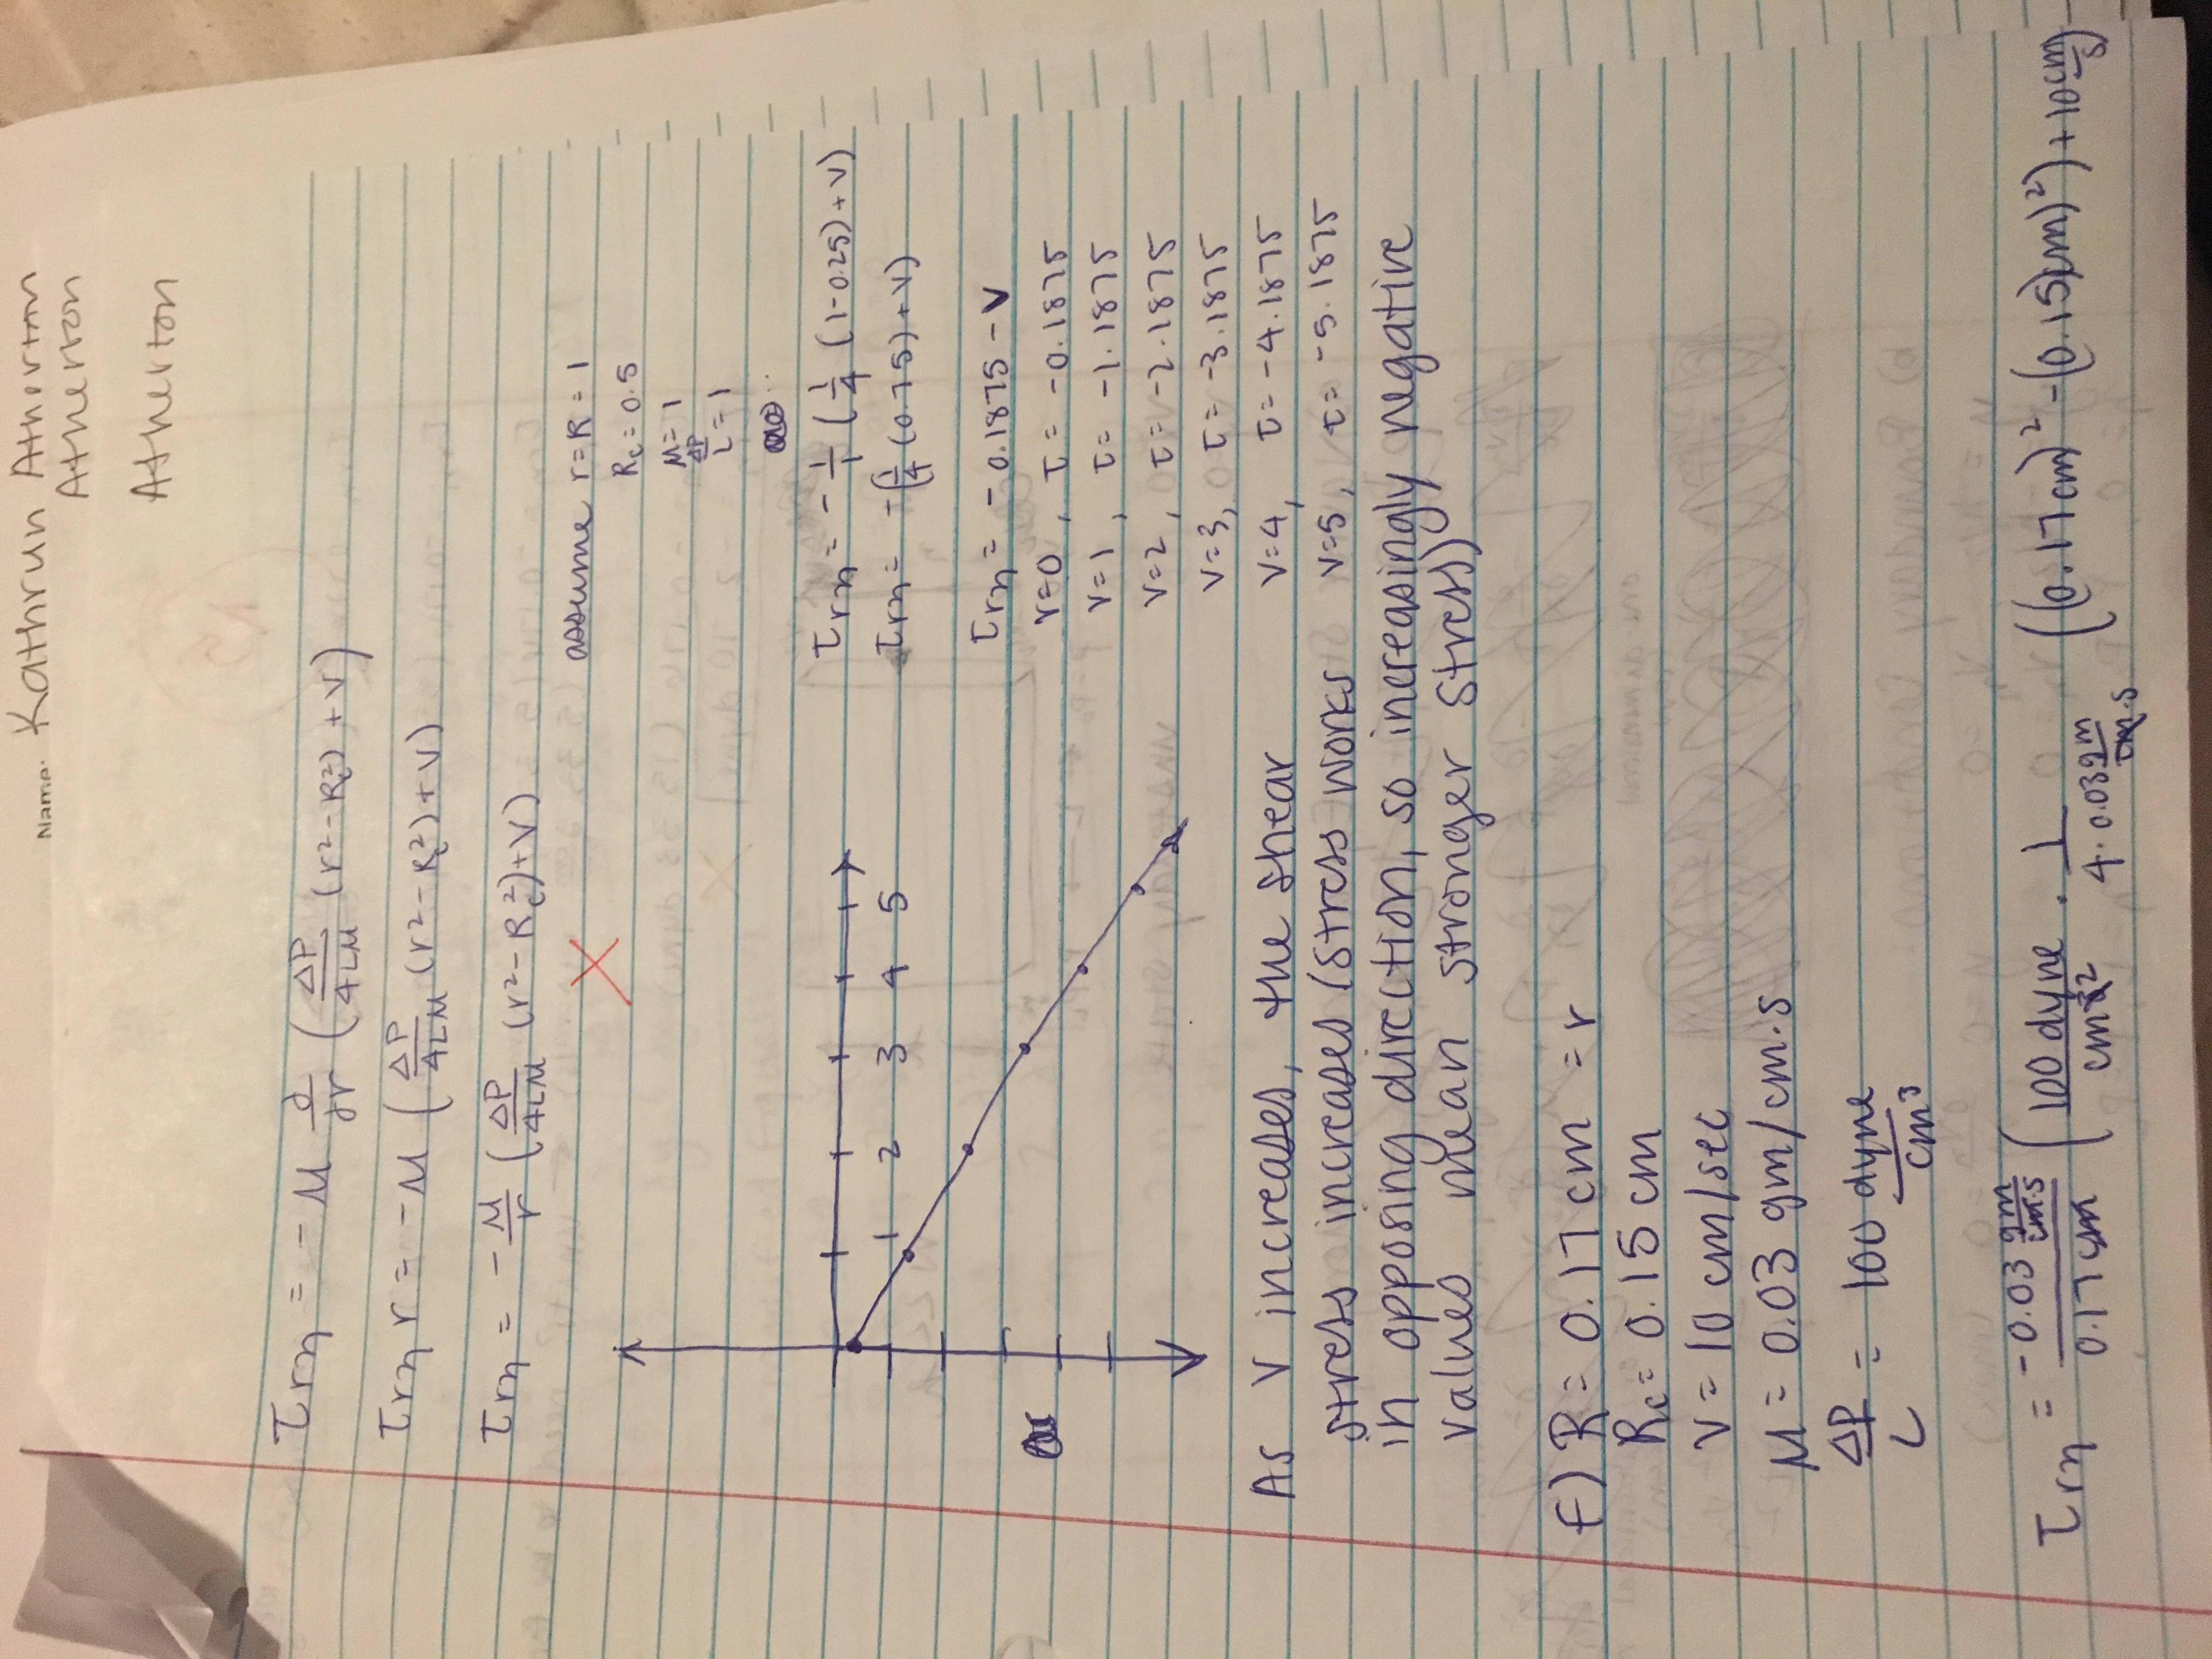 Name: Kathrun Atherton
Atherton
Atherton
τrη = -μ ∂/∂r (ΔP/4Lμ (r²-Rc²)+V)
τrη r = -μ (ΔP/4Lμ (r²-Rc²)+V)
τrη = -μ/r (ΔP/4Lμ (r²-Rc²)+V)
assume r=R=1
Rc=0.5
μ=1
ΔP/L=1
1 2 3 4 5
τrη = -1/1 (1/4 (1-0.25)+V)
τrη = -(1/4 (0.75)+V)
τrη = -0.1875-V
V=0, τ= -0.1875
V=1, τ= -1.1875
V=2, τ= -2.1875
V=3, τ= -3.1875
V=4, τ= -4.1875
V=5, τ= -5.1875
As V increases, the shear
stress increases (stress works
in opposing direction, so increasingly negative
values mean stronger stress)
f) R= 0.17 cm = r
Rc= 0.15 cm
V= 10 cm/sec
μ= 0.03 gm/cm·s
ΔP/L = 100 dyne/cm³
τrη = -0.03 gm/cm·s / 0.17 cm (100 dyne/cm² · 1/4·0.03 gm/cm·s ((0.17cm)²-(0.15cm)²)+10 cm/s)